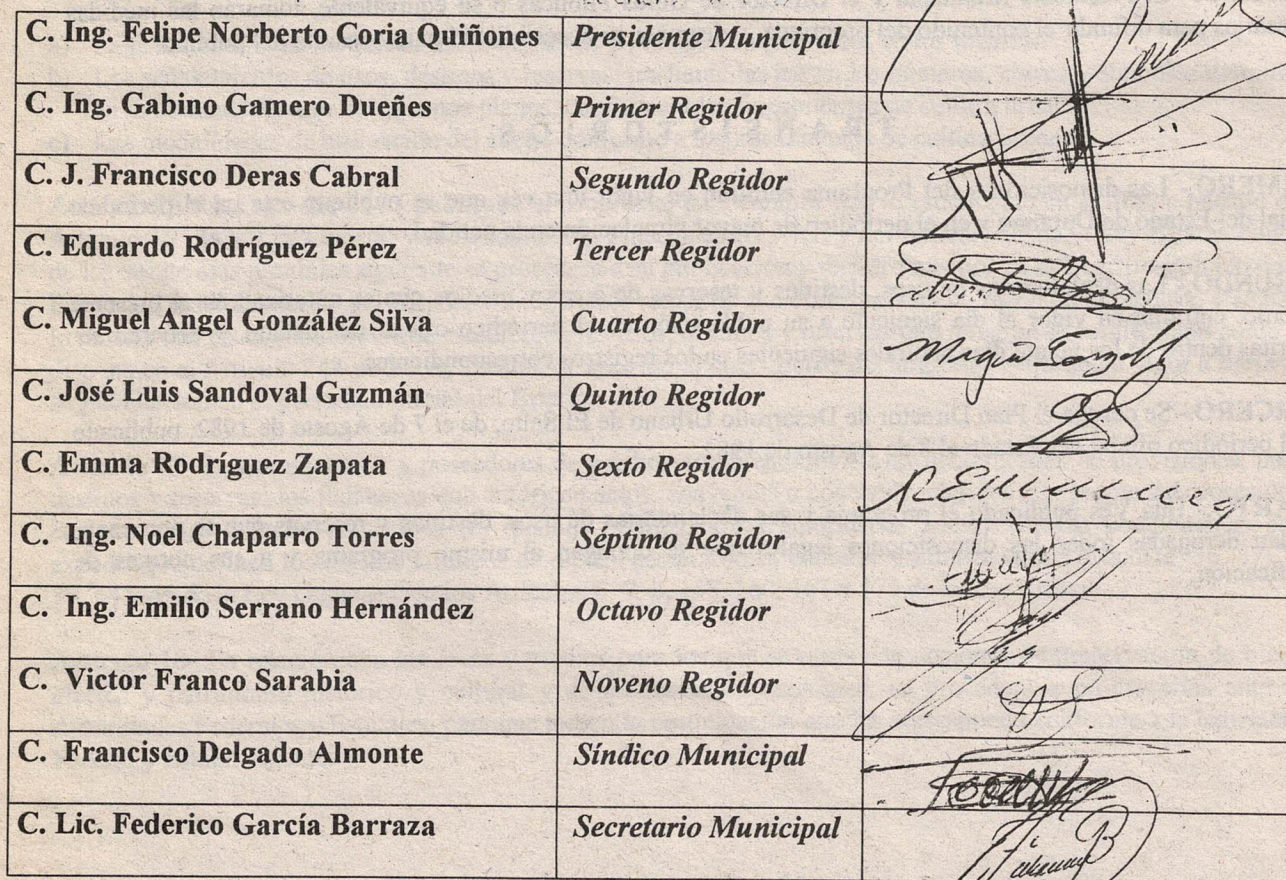 C. Ing. Felipe Norberto Coria Quiñones Presidente Municipal
C. Ing. Gabino Gamero Dueñes Primer Regidor
C. J. Francisco Deras Cabral Segundo Regidor
C. Eduardo Rodríguez Pérez Tercer Regidor
C. Miguel Angel González Silva Cuarto Regidor
C. José Luis Sandoval Guzmán Quinto Regidor
C. Emma Rodríguez Zapata Sexto Regidor
C. Ing. Noel Chaparro Torres Séptimo Regidor
C. Ing. Emilio Serrano Hernández Octavo Regidor
C. Victor Franco Sarabia Noveno Regidor
C. Francisco Delgado Almonte Síndico Municipal
C. Lic. Federico García Barraza Secretario Municipal